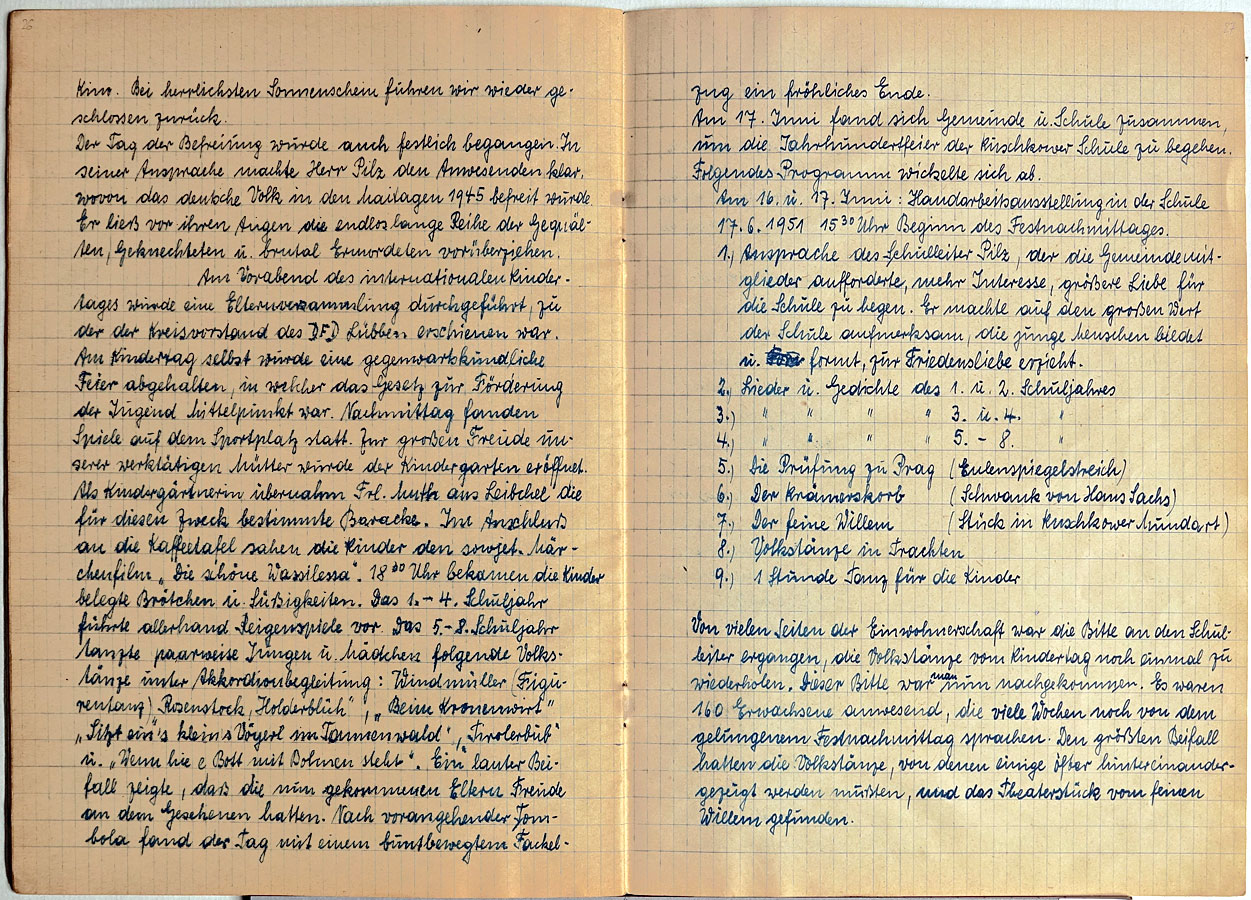 26
Kino. Bei herrlichsten Sonnenschein fuhren wir wieder ge-
schlossen zurück.
Der Tag der Befreiung wurde auch festlich begangen. In
seiner Ansprache machte Herr Pilz den Anwesenden klar,
wovon das deutsche Volk in den Maitagen 1945 befreit wurde.
Er ließ vor ihren Augen die endlos lange Reihe der Gequäl-
ten, Geknechteten u. brutal Ermordeten vorüberziehen.
Am Vorabend des internationalen Kinder-
tages wurde eine Elternversammlung durchgeführt, zu
der der Kreisvorstand des DFD Lübben erschienen war.
Am Kindertag selbst wurde eine gegenwartskundliche
Feier abgehalten, in welcher das Gesetz zur Förderung
der Jugend Mittelpunkt war. Nachmittag fanden
Spiele auf dem Sportplatz statt. Zur großen Freude un-
serer werktätigen Mütter wurde der Kindergarten eröffnet.
Als Kindergärtnerin übernahm Frl. Muth aus Leibchel die
für diesen Zweck bestimmte Baracke. Im Anschluß
an die Kaffeetafel sahen die Kinder den sowjet. Mär-
chenfilm „Die schöne Wassilessa“. 18 30 Uhr bekamen die Kinder
belegte Brötchen u. Süßigkeiten. Das 1.-4. Schuljahr
führte allerhand Reigenspiele vor. Das 5.-8. Schuljahr
tanzte paarweise Jungen u. Mädchen folgende Volks-
tänze unter Akkordionbegleitung: Windmüller (Figu-
rentanz) „Rosenstock, Holderblüh“, „Beim Kronenwirt“
„Sitzt ein's kleins Vögerl im Tannenwald“, „Tirolerbub“
u. „Wenn hie e Bott mit Bohnen steht“. Ein lauter Bei-
fall zeigte, daß die nun gekommenen Eltern Freude
an dem Gesehenen hatten. Nach vorangehender Tom-
bola fand der Tag mit einem buntbewegtem Fackel-
zug ein fröhliches Ende.
Am 17. Juni fand sich Gemeinde u. Schule zusammen,
um die Jahrhundertfeier der Kuschkower Schule zu begehen.
Folgendes Programm wickelte sich ab.
Am 16. u. 17. Juni: Handarbeitsausstellung in der Schule
17.6.1951 15 30 Uhr Beginn des Festnachmittages.
1.) Ansprache des Schulleiter Pilz, der die Gemeindemit-
glieder aufforderte, mehr Interesse, größere Liebe für
die Schule zu hegen. Er machte auf den großen Wert
der Schule aufmerksam, die junge Menschen bildet
u. formt, zur Friedensliebe erzieht.
2.) Lieder u. Gedichte des 1. u. 2. Schuljahres
3.) " " " " 3. u. 4. "
4.) " " " " 5. - 8. "
5.) Die Prüfung zu Prag (Eulenspiegelstreich)
6.) Der Krämerskorb (Schwank von Hans Sachs)
7.) Der feine Willem (Stück in Kuschkower Mundart)
8.) Volkstänze in Trachten
9.) 1 Stunde Tanz für die Kinder
Von vielen Seiten der Einwohnerschaft war die Bitte an den Schul-
leiter ergangen, die Volkstänze vom Kindertag noch einmal zu
wiederholen. Dieser Bitte war man nun nachgekommen. Es waren
160 Erwachsene anwesend, die viele Wochen noch von dem
gelungenem Festnachmittag sprachen. Den größten Beifall
hatten die Volkstänze, von denen einige öfter hintereinander-
gezeigt werden mußten, und das Theaterstück vom feinen
Willem gefunden.